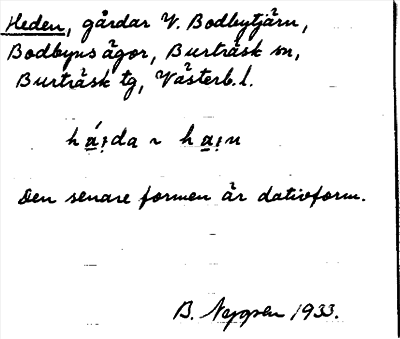 Heden, gårdar V. Bodbytjärn,
Bodbyns ägor, Burträsk sn,
Burträsk tg, Västerb. l.
há̱i̯da ~ ha̱i̯n
Den senare formen är dativform.
B. Nygren 1933.